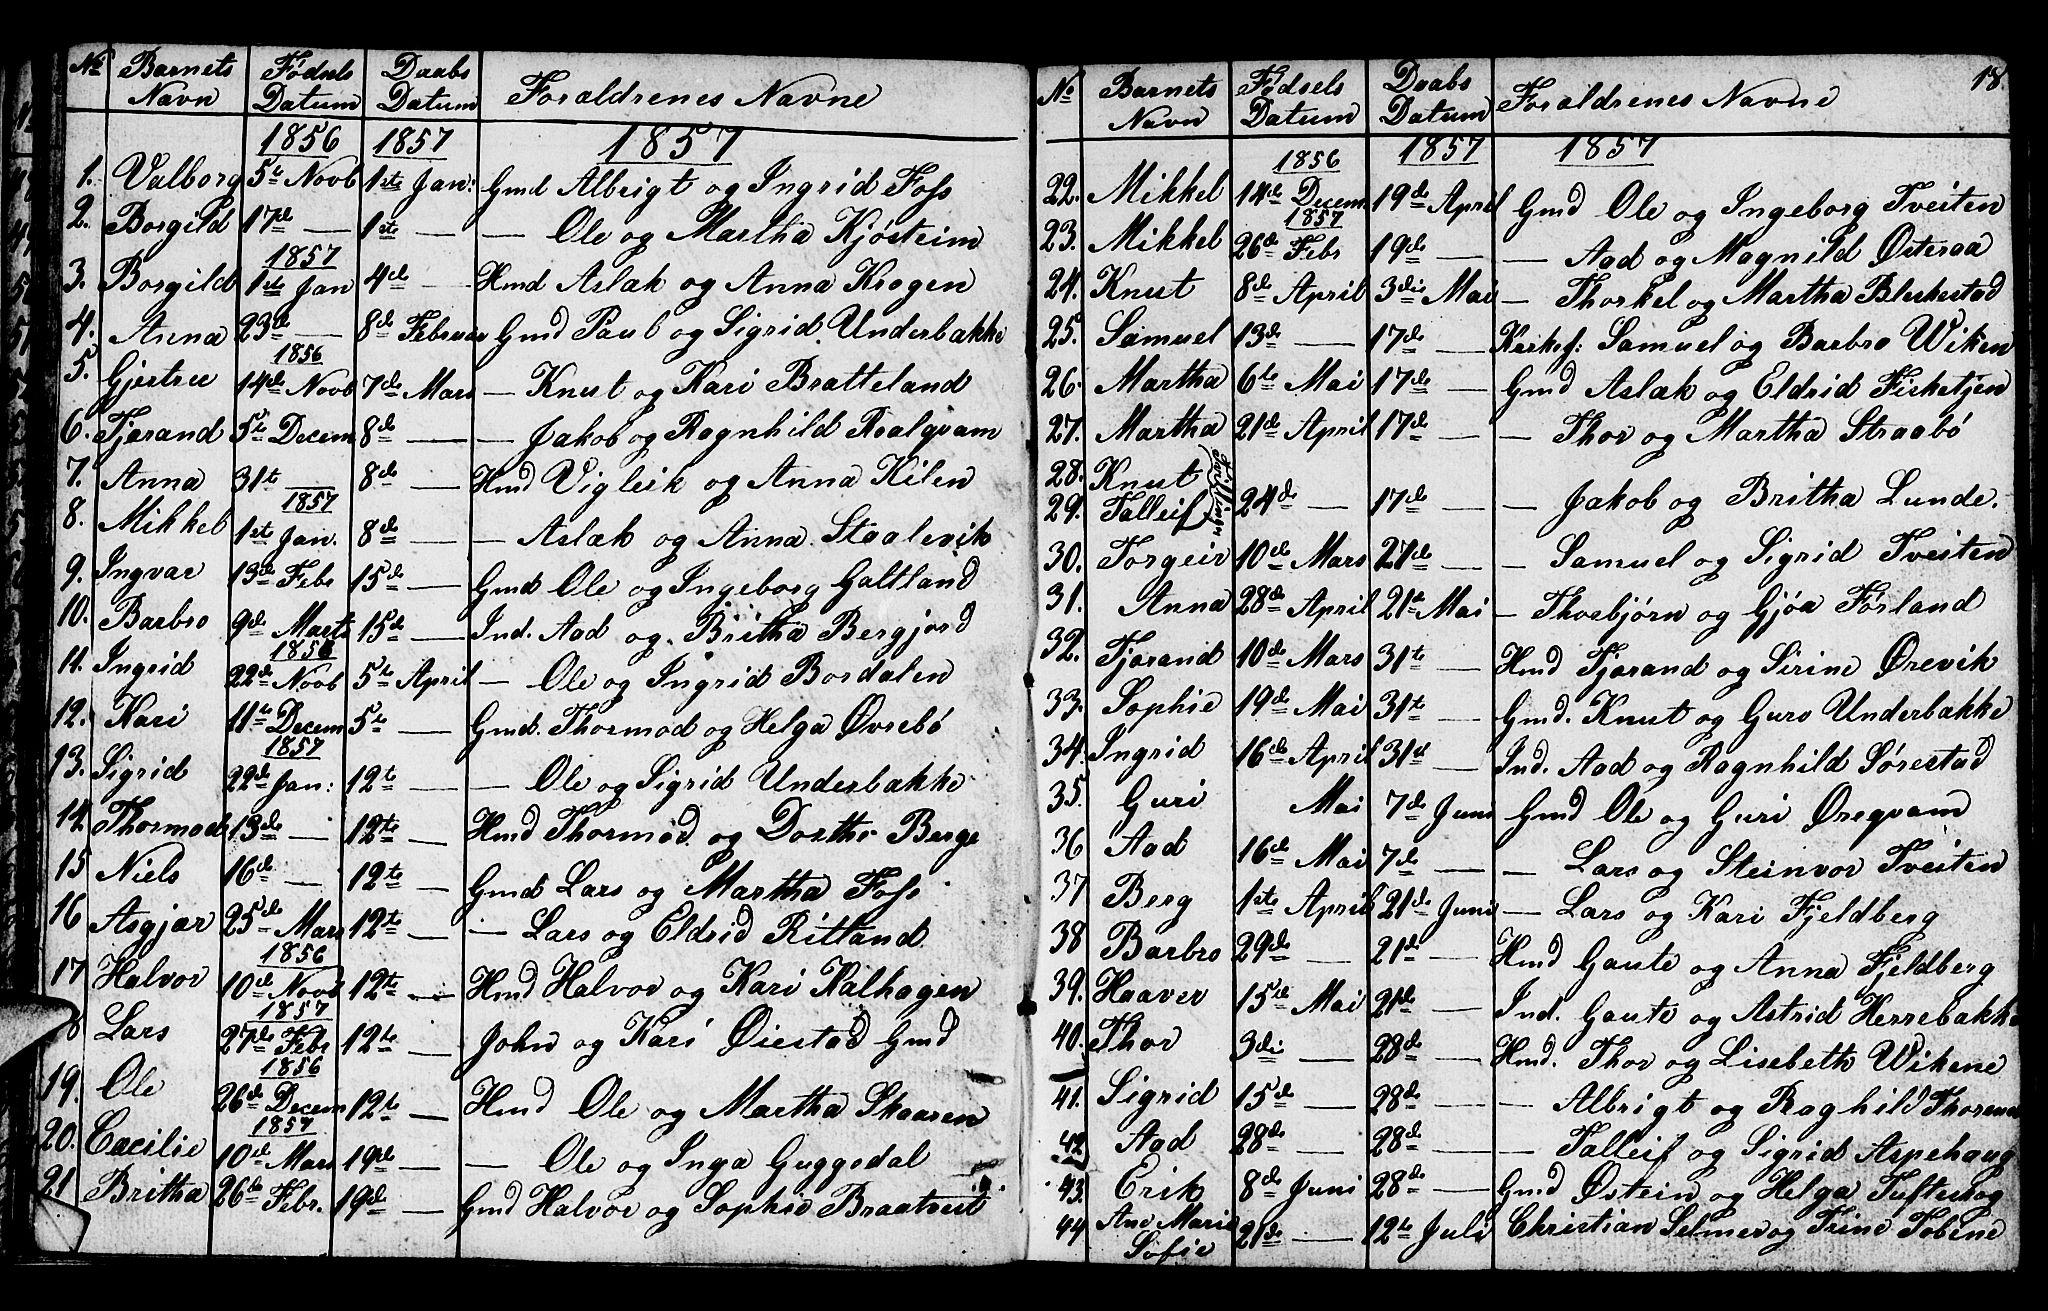 No Barnets Navn Fødsels Datum Daabs Datum Foraldrenes Navne
1856 1857 1857
1. Valborg 5te Novb 1ste Jan: Gmd Albrigt og Ingrid Foss
2. Borgild 17de — 1ste — — Ole og Martha Kjøsteim
1857
3. Borgild 1ste Jan 4de — Hmd Aslak og Anna Krogen
4. Anna 23de — 8de Februar Gmd Paul og Sigrid Underbakke
1856
5. Gjertru 14de Novb 7de Mars — Knut og Kari Bratteland
6. Tjarand 5te Decem 8de — — Jakob og Ragnhild Roalqvam
7. Anna 31te — 8de — Hmd Vigleik og Anna Kilen
1857
8. Mikkel 1ste Jan. 8de — — Aslak og Anna Staalevik
9. Ingvar 13de Febr 15de — Gmd Ole og Ingeborg Galtland
10. Barbro 9de Marts 15de — Ind. Aad og Britha Bergjord
1856
11. Ingrid 22de Novb 5te April — Ole og Ingrid Bordalen
12. Kari 11te Decem 5te — Gmd. Thormod og Helga Øvrebø
1857
13. Sigrid 22de Jan: 12te — — Ole og Sigrid Underbakke
14. Thormod 13de — 12te — Hmd Thormod og Dorthe Berge
15 Niels 16de — 12te — Gmd Lars og Martha Foss
16 Asgjær 25de Mars 12te — — Lars og Eldrid Ritland
1856
17 Halvor 10de Novb 12te — Hmd Halvor og Kari Kalhagen
1857
8 Lars 27de Febr 12te — John og Kari Øiestad Gmd
1856
19. Ole 26de Decem 12te — Hmd Ole og Martha Skaaren
1857
20. Cæcilie 10de Mars 19de — — Ole og Inga Guggedal
21 Britha 26de Febr. 19de — Gmd Halvor og Sophie Braatveit
18.
No Barnets Navn Fødsels Datum Daabs Datum Foraldrenes Navne
1856 1857 1857
22. Mikkel 14de Decem. 19de April Gmd Ole og Ingeborg Tveiten
1857
23. Mikkel 26de Febr 19de — — Aad og Magnild Østeraa
24. Knut 8de April 3die Mai — Thorkel og Martha Bleskestad
25. Samuel 13de — 17de — Kirkes: Samuel og Barbro Wiken
26. Martha 6te Mai 17de — Gmd Aslak og Eldrid Fisketjen
27. Martha 21de April 17de — — Thor og Martha Straabø
28. Knut
29. Talleif 24de — 17de — — Jakob og Britha Lunde.
30. Torgeir 10de Mars 27de — Samuel og Sigrid Tveiten
31. Anna 28de April 21te Mai — Thorbjörn og Gjöa Førland
32. Tjarand 10de Mars 31te — Hmd Tjarand og Sirine Ørevik
33. Sophie 19de Mai 31te — Gmd. Knut og Guro Underbakke
34. Ingrid 16de April 31te — Ind. Aad og Ragnhild Sørestad
35. Guri Mai 7de Juni Gmd Ole og Guri Øreqvam
36 Aad 16de Mai 7de — — Lars og Steinvor Tveiten
37 Berg 1ste April 21de Juni — Lars og Kari Fjeldberg
38 Barbro 29de — 21de — Hmd Gaute og Anna Fjeldberg
39. Haaver 15de Mai 21de — Ind. Gaute og Astrid Herrebakke
40. Thor 3die — 28de — Hmd. Thor og Lisebeth Wikene
41. Sigrid 15de — 28de — — Albrigt og Raghild
42 Aad 28de — 28de — — Talleif og Sigrid Aspehaug
43. Erik 8de Juni 28de — Gmd Østein og Helga Tufteskog
44 Ane Marie Sofie 21de — 12te Juli Christian Selmer og Trine Tobene